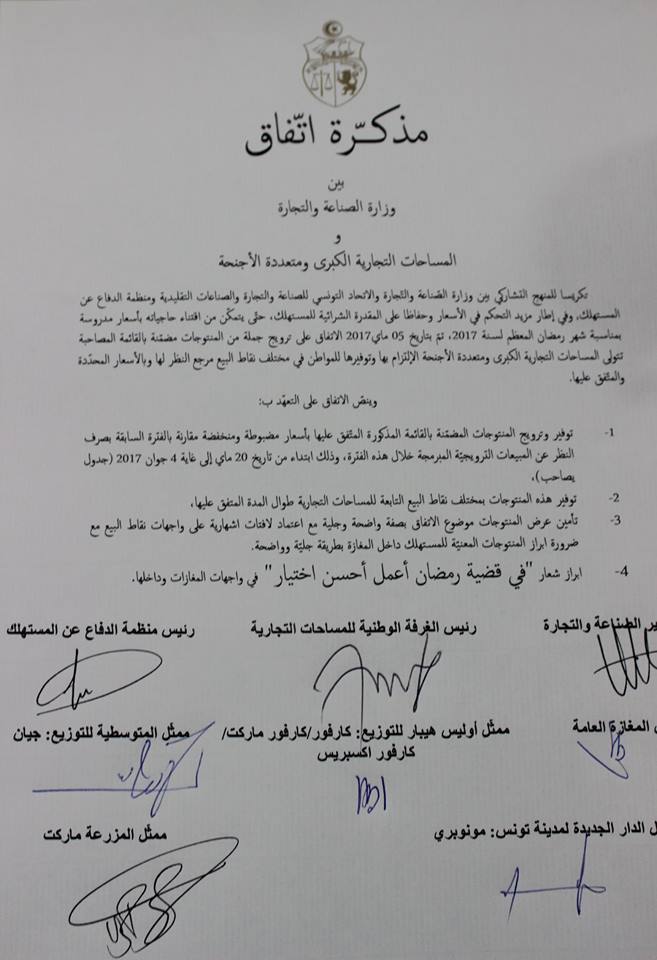 مذكّرة اتّفاق
بين
وزارة الصناعة والتجارة
و
المساحات التجارية الكبرى ومتعددة الأجنحة
تكريسا للمنهج التشاركي بين وزارة الصّناعة والتّجارة والاتحاد التونسي للصناعة والتجارة والصناعات التقليدية ومنظمة الدفاع عن
المستهلك، وفي إطار مزيد التحكم في الأسعار وحفاظا على المقدرة الشرائية للمستهلك، حتّى يتمكّن من اقتناء حاجياته بأسعار مدروسة
بمناسبة شهر رمضان المعظم لسنة 2017، تمّ بتاريخ 05 ماي2017 الاتفاق على ترويج جملة من المنتوجات مضمّنة بالقائمة المصاحبة
تتولى المساحات التجارية الكبرى ومتعددة الأجنحة الإلتزام بها وتوفيرها للمواطن في مختلف نقاط البيع مرجع النظر لها وبالأسعار المحدّدة
والمتّفق عليها.
وينصّ الاتفاق على التعهّد ب:
1- توفير وترويج المنتوجات المضمّنة بالقائمة المذكورة المتّفق عليها بأسعار مضبوطة ومنخفضة مقارنة بالفترة السابقة بصرف
النظر عن المبيعات الترويجيّة المبرمجة خلال هذه الفترة، وذلك ابتداء من تاريخ 20 ماي إلى غاية 4 جوان 2017 (جدول
يصاحب)،
2- توفير هذه المنتوجات بمختلف نقاط البيع التابعة للمساحات التجارية طوال المدة المتفق عليها،
3- تأمين عرض المنتوجات موضوع الاتفاق بصفة واضحة وجلية مع اعتماد لافتات اشهارية على واجهات نقاط البيع مع
ضرورة ابراز المنتوجات المعنيّة للمستهلك داخل المغازة بطريقة جليّة وواضحة.
4- ابراز شعار "في قضية رمضان أعمل أحسن اختيار" في واجهات المغازات وداخلها.
ير الصناعة والتجارة رئيس الغرفة الوطنية للمساحات التجارية رئيس منظمة الدفاع عن المستهلك
المغازة العامة ممثّل أوليس هيبار للتوزيع: كارفور/كارفور ماركت/ ممثّل المتوسطية للتوزيع: جيان
كارفور اكسبريس
ل الدار الجديدة لمدينة تونس: مونوبري ممثّل المزرعة ماركت